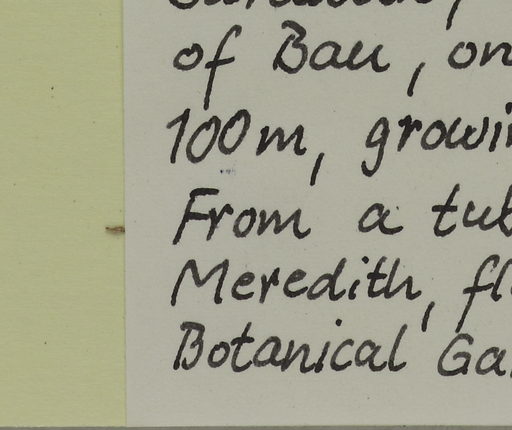 of Bau, on
100m, growi
From a tub
Meredith, fl
Botanical Ga